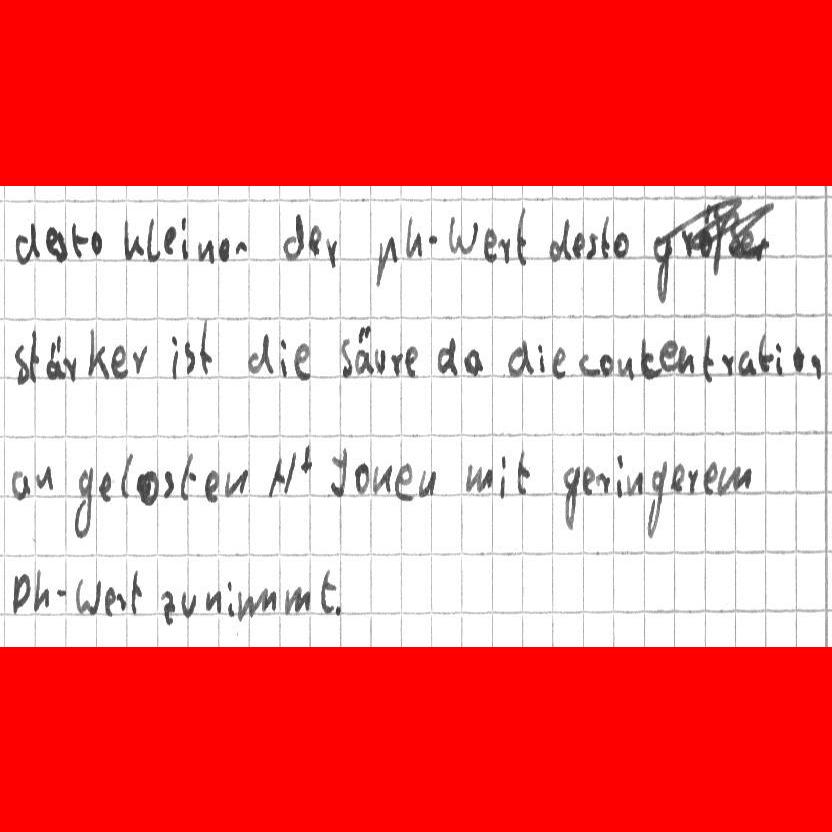 desto kleiner der ph-Wert desto größer
stärker ist die säure da die contentration
an gelosten H+ Jonen mit geringerem
Ph-Wert zunimmt.